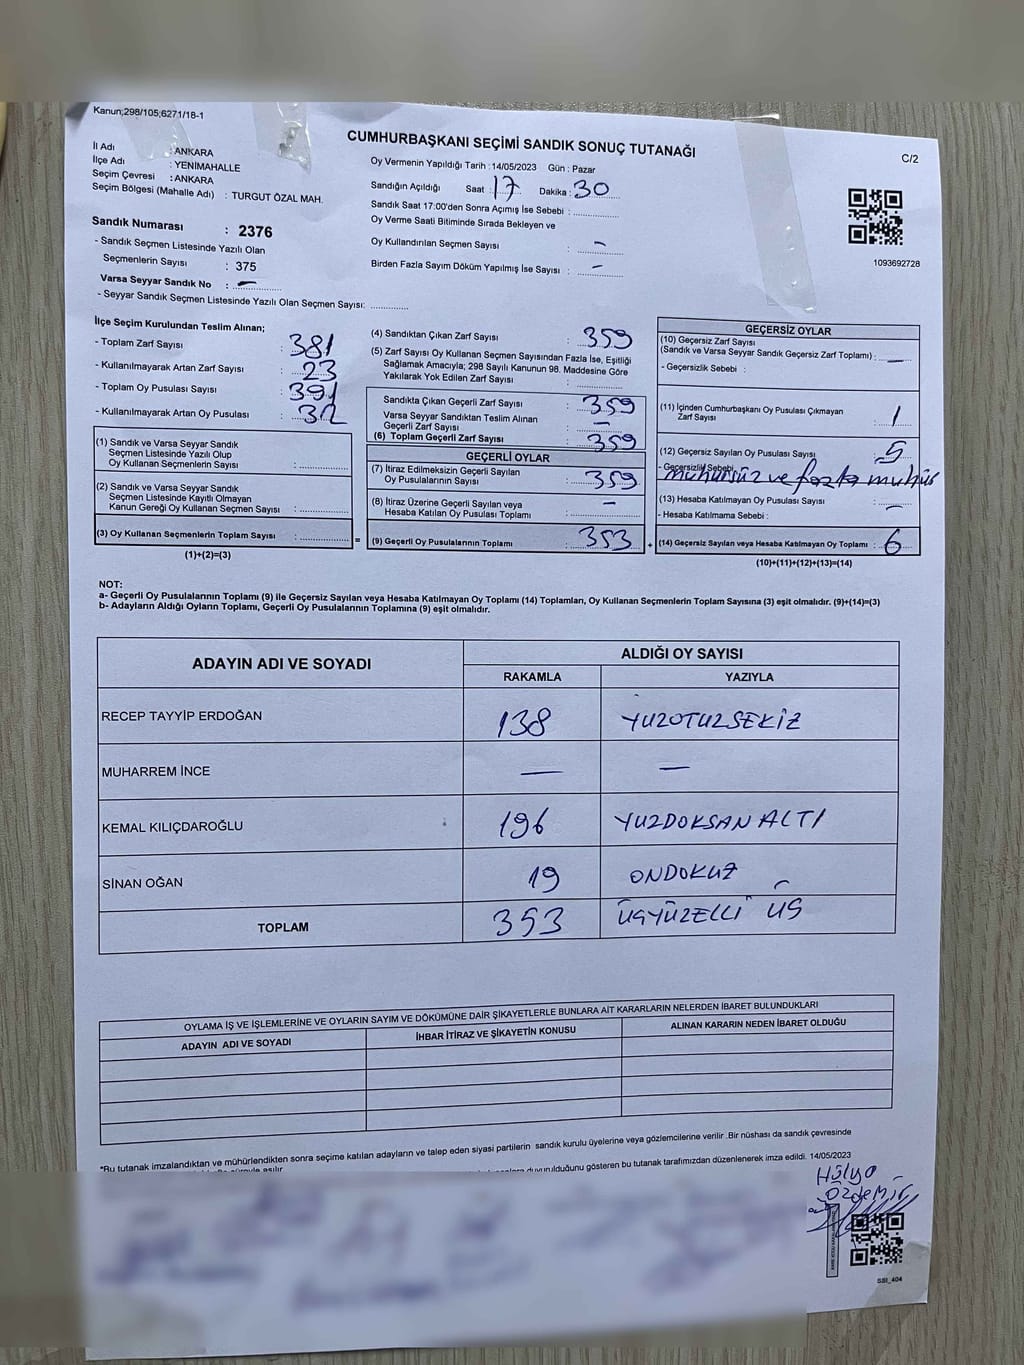 Kanun;298/105;6271/18-1
CUMHURBAŞKANI SEÇİMİ SANDIK SONUÇ TUTANAĞI
C/2
İl Adı : ANKARA
İlçe Adı : YENİMAHALLE
Seçim Çevresi : ANKARA
Seçim Bölgesi (Mahalle Adı) : TURGUT ÖZAL MAH.
Oy Vermenin Yapıldığı Tarih :14/05/2023 Gün : Pazar
Sandığın Açıldığı Saat : 17 Dakika : 30
Sandık Saat 17:00'den Sonra Açımış İse Sebebi :
Oy Verme Saati Bitiminde Sırada Bekleyen ve
Oy Kullandırılan Seçmen Sayısı : –
Birden Fazla Sayım Döküm Yapılmış İse Sayısı : –
1093692728
Sandık Numarası : 2376
- Sandık Seçmen Listesinde Yazılı Olan
Seçmenlerin Sayısı : 375
Varsa Seyyar Sandık No : –
- Seyyar Sandık Seçmen Listesinde Yazılı Olan Seçmen Sayısı:
İlçe Seçim Kurulundan Teslim Alınan;
- Toplam Zarf Sayısı : 381
- Kullanılmayarak Artan Zarf Sayısı : 23
- Toplam Oy Pusulası Sayısı : 391
- Kullanılmayarak Artan Oy Pusulası : 32
(1) Sandık ve Varsa Seyyar Sandık
Seçmen Listesinde Yazılı Olup
Oy Kullanan Seçmenlerin Sayısı :
(2) Sandık ve Varsa Seyyar Sandık
Seçmen Listesinde Kayıtlı Olmayan
Kanun Gereği Oy Kullanan Seçmen Sayısı :
(3) Oy Kullanan Seçmenlerin Toplam Sayısı :
(1)+(2)=(3)
(4) Sandıktan Çıkan Zarf Sayısı : 359
(5) Zarf Sayısı Oy Kullanan Seçmen Sayısından Fazla İse, Eşitliği
Sağlamak Amacıyla; 298 Sayılı Kanunun 98. Maddesine Göre
Yakılarak Yok Edilen Zarf Sayısı :
Sandıkta Çıkan Geçerli Zarf Sayısı : 359
Varsa Seyyar Sandıktan Teslim Alınan
Geçerli Zarf Sayısı : –
(6) Toplam Geçerli Zarf Sayısı : 359
GEÇERLİ OYLAR
(7) İtiraz Edilmeksizin Geçerli Sayılan
Oy Pusulalarının Sayısı : 359
(8) İtiraz Üzerine Geçerli Sayılan veya
Hesaba Katılan Oy Pusulası Toplamı : –
(9) Geçerli Oy Pusulalarının Toplamı : 353
GEÇERSİZ OYLAR
(10) Geçersiz Zarf Sayısı
(Sandık ve Varsa Seyyar Sandık Geçersiz Zarf Toplamı) : –
- Geçersizlik Sebebi :
(11) İçinden Cumhurbaşkanı Oy Pusulası Çıkmayan
Zarf Sayısı : 1
(12) Geçersiz Sayılan Oy Pusulası Sayısı : 5
- Geçersizlik Sebebi mühürsüz ve fazla mühür
(13) Hesaba Katılmayan Oy Pusulası Sayısı : –
- Hesaba Katılmama Sebebi :
(14) Geçersiz Sayılan veya Hesaba Katılmayan Oy Toplamı : 6
(10)+(11)+(12)+(13)=(14)
NOT:
a- Geçerli Oy Pusulalarının Toplamı (9) ile Geçersiz Sayılan veya Hesaba Katılmayan Oy Toplamı (14) Toplamları, Oy Kullanan Seçmenlerin Toplam Sayısına (3) eşit olmalıdır. (9)+(14)=(3)
b- Adayların Aldığı Oyların Toplamı, Geçerli Oy Pusulalarının Toplamına (9) eşit olmalıdır.
ADAYIN ADI VE SOYADI
ALDIĞI OY SAYISI
RAKAMLA YAZIYLA
RECEP TAYYİP ERDOĞAN 138 YUZOTUZSEKİZ
MUHARREM İNCE — —
KEMAL KILIÇDAROĞLU 196 YUZDOKSANALTI
SİNAN OĞAN 19 ONDOKUZ
TOPLAM 353 ÜÇYÜZELLİ ÜÇ
OYLAMA İŞ VE İŞLEMLERİNE VE OYLARIN SAYIM VE DÖKÜMÜNE DAİR ŞİKAYETLERLE BUNLARA AİT KARARLARIN NELERDEN İBARET BULUNDUKLARI
ADAYIN ADI VE SOYADI İHBAR İTİRAZ VE ŞİKAYETİN KONUSU ALINAN KARARIN NEDEN İBARET OLDUĞU
*Bu tutanak imzalandıktan ve mühürlendikten sonra seçime katılan adayların ve talep eden siyasi partilerin sandık kurulu üyelerine veya gözlemcilerine verilir .Bir nüshası da sandık çevresinde
duyurulduğunu gösteren bu tutanak tarafımızdan düzenlenerek imza edildi. 14/05/2023
Hülya
Özdemir
SSI_404